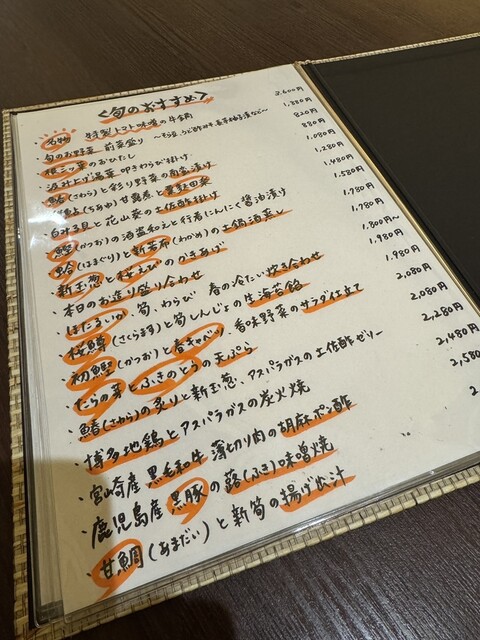 <旬のおすすめ>
・名物 特製トマト味噌の牛鍋 2,600円
・旬のお野菜 前菜盛り 1,380円
・根三つ葉のおひたし 820円
・汲み上げ湯葉 叩きわらび掛け 880円
・鰆(さわら)と彩り野菜の南蛮漬け 1,080円
・稚鮎(ちあゆ)甘露煮と 1,280円
・白みる貝と花山葵の土佐酢掛け 1,480円
・鰹(かつお)の酒盗和えと行者にんにく醤油漬け 1,580円
・蛤(はまぐり)と新若布(わかめ)の土鍋酒蒸し 1,780円
・新玉葱と桜えびのかきあげ 1,780円
・本日のお造り盛り合わせ 1,800円~
・ほたるいか、筍、わらび 春の冷たい炊き合わせ 1,980円
・桜鱒(さくらます)と筍しんじょの生海苔餡 1,980円
・初鰹(かつお)と春キャベツ、香味野菜のサラダ仕立て 2,080円
・たらの芽とふきのとうの天ぷら 2,080円
・鰆(さわら)の炙りと新玉葱、アスパラガスの土佐酢ゼリー 2,280円
・博多地鶏とアスパラガスの炭火焼 2,480円
・宮崎産 黒毛和牛 薄切り肉の胡麻ポン酢 2,580
・鹿児島産 黒豚の蕗(ふき)味噌焼 2
・甘鯛(あまだい)と新筍の揚げ出汁